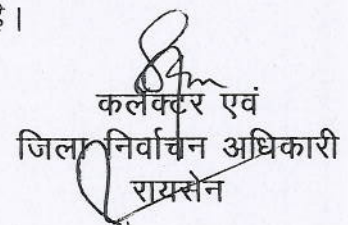 है।
कलेक्टर एवं
जिला निर्वाचन अधिकारी
रायसेन